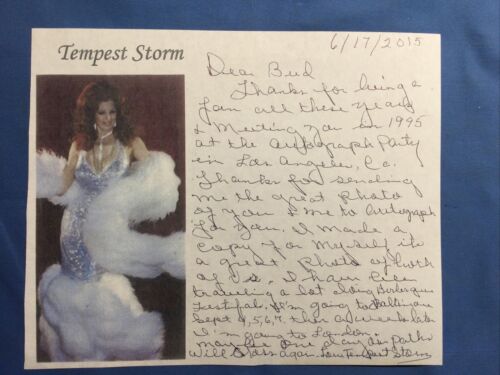 Tempest Storm
6/17/2015
Dear Bud
Thanks for being a
fan all these years
& Meeting you in 1995
at the Autograph Party
in Los Angeles, Ca.
Thanks for sending
me the great photo
of you & me to Autograph
for you. I made a
copy for myself its
a great photo of both
of us. I have been
traveling a lot doing Burlesque
Festival. I'm going to Baltimore
Sept 4, 5, 6, 7. then a week later
I'm going to London.
maybe one day our paths
will cross again. Love Tempest Storm